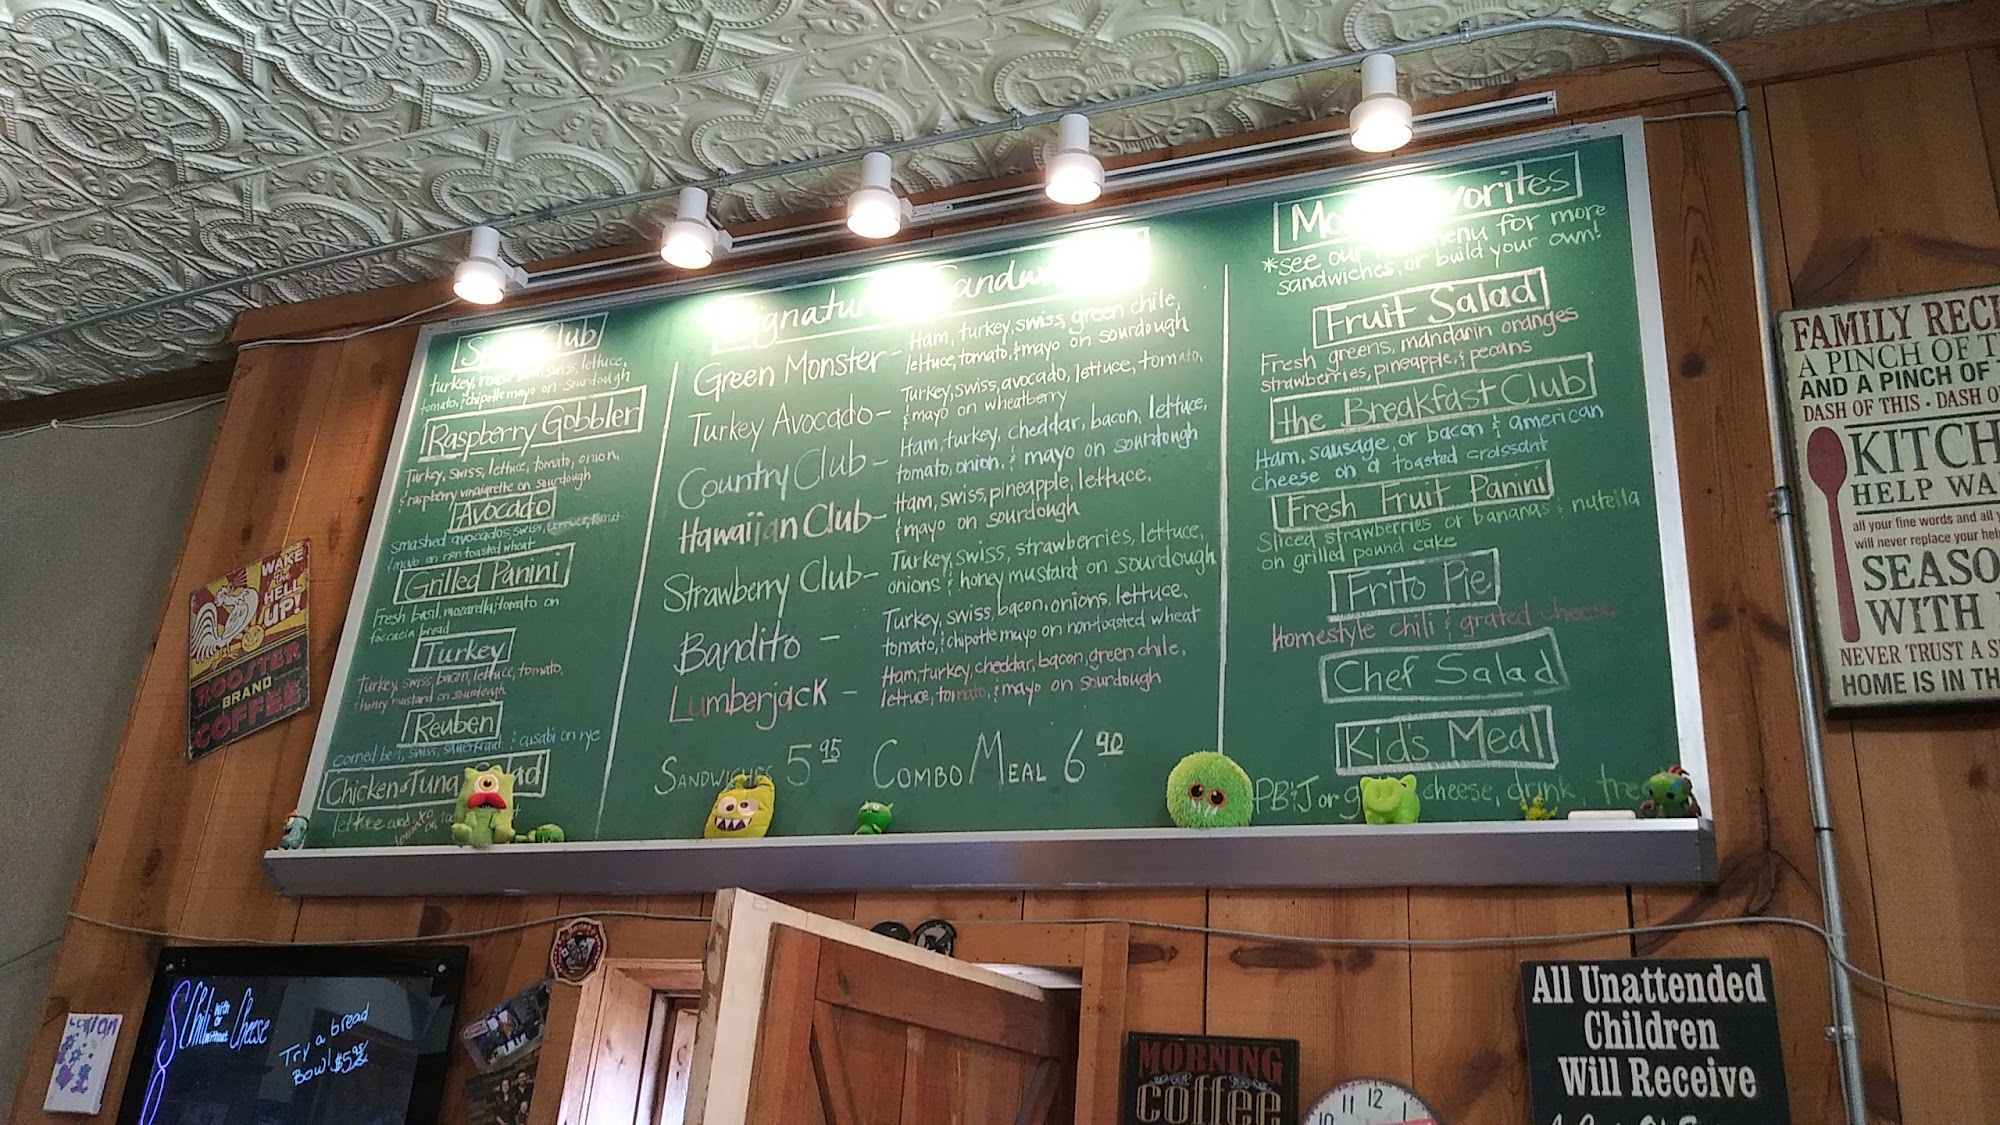 Club
turkey, swiss, lettuce,
tomato, & chipotle mayo on sourdough
Raspberry Gobbler
Turkey, swiss, lettuce, tomato, onion,
& raspberry vinaigrette on sourdough
Avocado
smashed avocados, swiss, lettuce, tomato
& mayo on non toasted wheat
Grilled Panini
Fresh basil, mozarella, tomato on
foccacia bread
Turkey
Turkey, swiss, bacon, lettuce, tomato,
& honey mustard on sourdough
Reuben
corned swiss, sauerkraut, & cusabi on rye
Chicken or Tuna Salad
lettuce and
Signature
Green Monster - Ham, turkey, swiss, green chile,
lettuce, tomato, & mayo on sourdough
Turkey Avocado - Turkey, swiss, avocado, lettuce, tomato,
& mayo on wheatberry
Country Club - Ham, turkey, cheddar, bacon, lettuce,
tomato, onion, & mayo on sourdough
Hawaiian Club - Ham, swiss, pineapple, lettuce,
& mayo on sourdough
Strawberry Club - Turkey, swiss, strawberries, lettuce,
onions & honey mustard on sourdough
Bandito - Turkey, swiss, bacon, onions, lettuce,
tomato, & chipotle mayo on non-toasted wheat
Lumberjack - Ham, turkey, cheddar, bacon, green chile,
lettuce, tomato, & mayo on sourdough
Sandwiches 5 95 Combo Meal 6 90
*see our menu for more
sandwiches, or build your own!
Fruit Salad
Fresh greens, mandarin oranges
strawberries, pineapple, & pecans
the Breakfast Club
Ham, sausage, or bacon & american
cheese on a toasted croissant
Fresh Fruit Panini
Sliced strawberries or bananas & nutella
on grilled pound cake
Frito Pie
Homestyle chili & grated cheese
Chef Salad
Kid's Meal
PB&J or cheese, drink,
WAKE
the
HELL
UP!
ROOSTER
BRAND
COFFEE
FAMILY
A PINCH OF
AND A PINCH OF
DASH OF THIS • DASH
HELP
all your fine words and all
will never replace your
WITH
NEVER TRUST A
HOME IS IN
Chili with or without Cheese
Try a bread
Bowl! $5.95
MORNING
coffee
10 11 12 1
All Unattended
Children
Will Receive